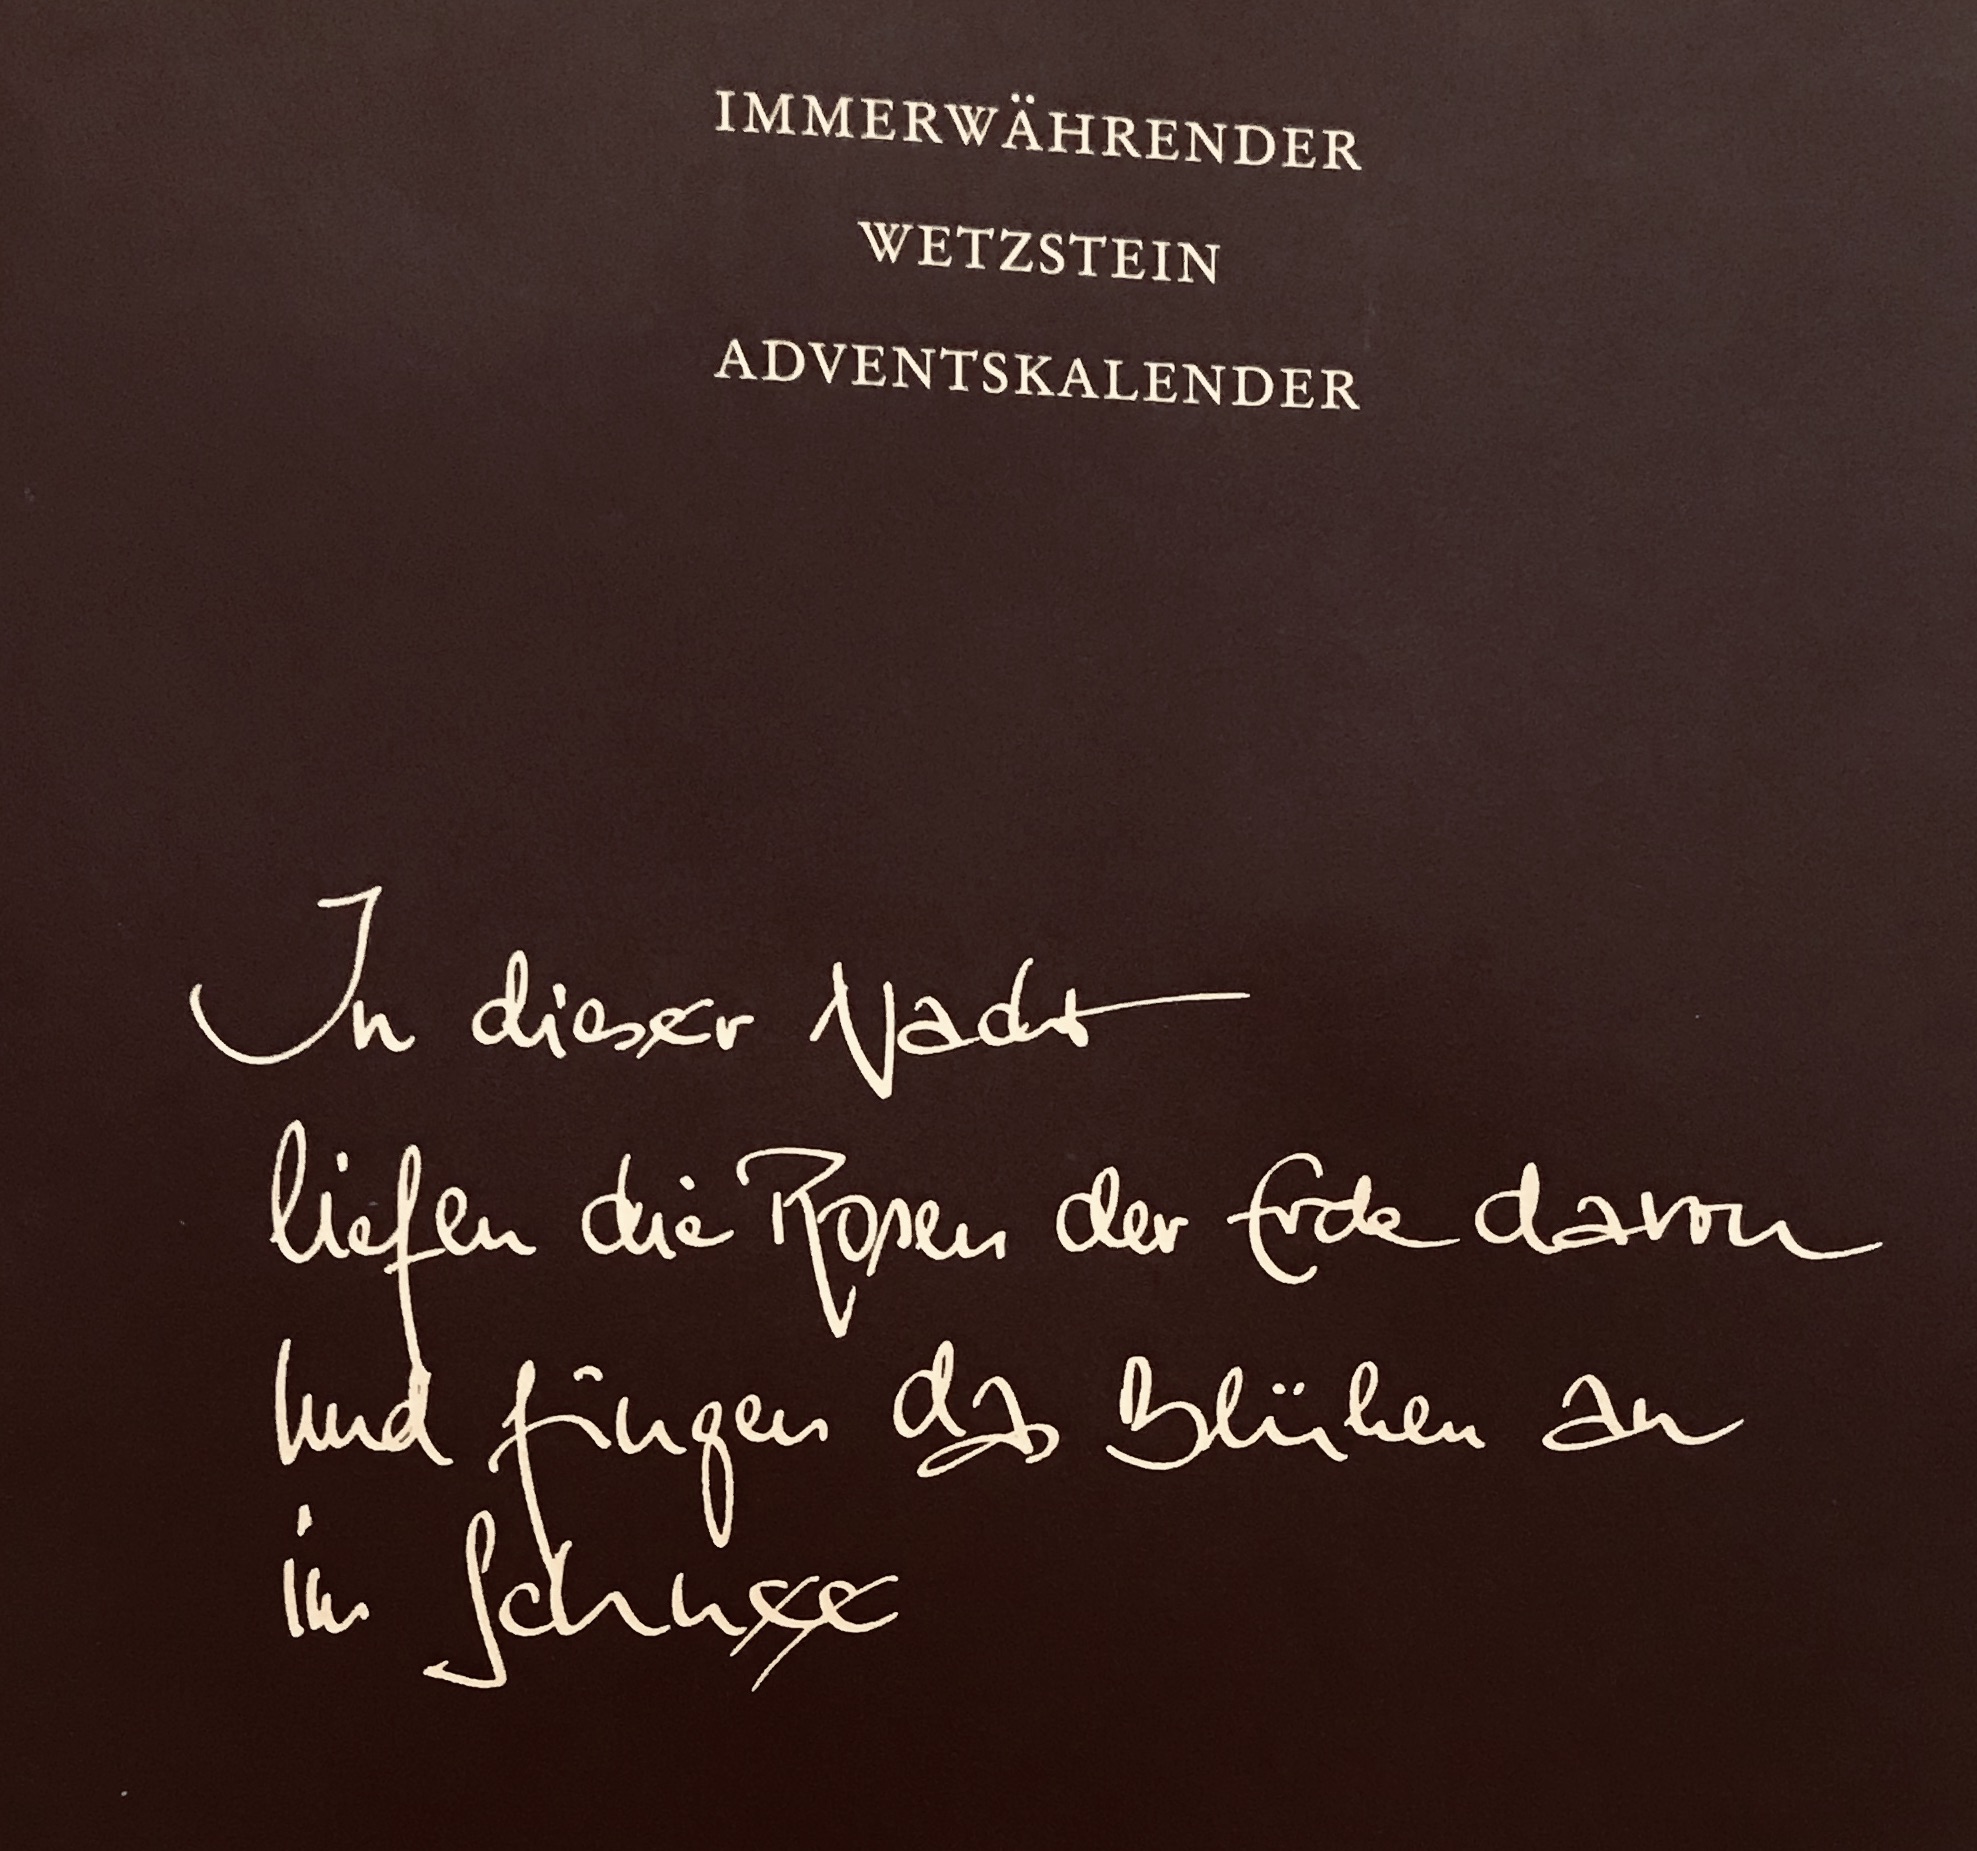 IMMERWÄHRENDER
WETZSTEIN
ADVENTSKALENDER
In dieser Nacht
liefen die Rosen der Erde davon
und fingen das Blühen an
im Schnee